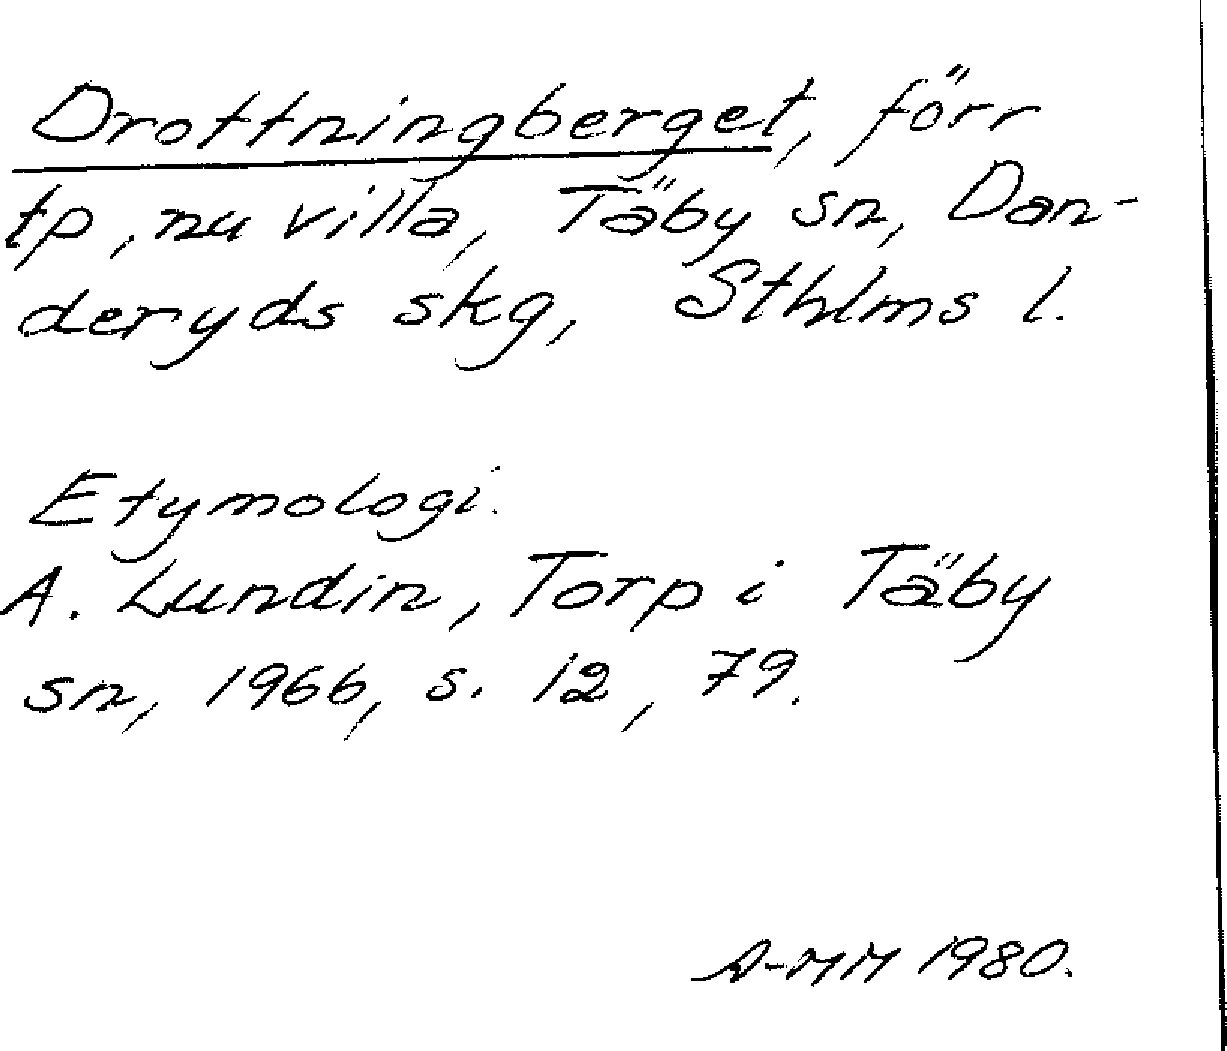 Drottningberget, förr
tp, nu villa, Täby sn, Dan-
deryds skg, Sthlms l.
Etymologi.
A. Lundin, Torp i Täby
sn, 1966, s. 12, 79.
A-MM 1980.